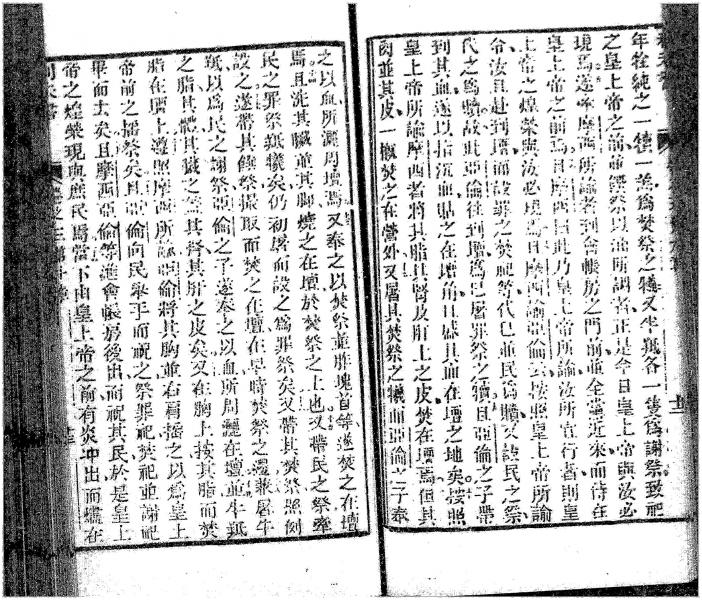 年牷純之一犢一羔爲焚祭之犧又牛羝各一隻爲謝祭致祀
之皇上帝之前並饌祭以油所調者正是今日皇上帝與汝必
境焉遂奉摩西所諭者到會帳房之門前並全會近來而侍在
皇上帝之前焉且摩西曰此乃皇上帝所諭汝所宜行者則皇
上帝之煌榮與汝必現焉且摩西諭亞倫云按照皇上帝所諭
令汝且赴到壇而設罪之焚祀等代己並民爲贖又設民之祭
代之爲贖故此亞倫往到壇爲己屠罪祭之犢且亞倫之子帶
到其血遂以指沉血貼之在壇角且盛其血在壇之地矣按照
皇上帝所諭摩西者將其脂其腎皮肝上之皮焚在壇焉但其
肉並其皮一概焚之在營外又屠其焚祭之犧血亞倫之子奉
之以血所灑周壇焉又奉之以焚祭並胙塊首等遂焚之在壇
焉且洗其臟並其脚燒之在壇於焚祭之上也又帶民之祭牽
民之罪祭羝犧矣仍初屠而設之爲罪祭矣又帶其焚祭照例
設之遂帶其饌祭撮取而焚之在壇在早時焚祭之邊兼屠牛
羝以爲民之謝祭亞倫之子遂奉之以血所周灑在壇並牛羝
之脂其體其臟之蓋其腎其肝之皮矣又在胸上按其脂而焚
脂在壇上遵照摩西所諭亞倫將其胸並右肩搖之以爲皇上
帝前之搖祭矣且亞倫向民舉手而祝之祭罪祀焚祀並謝祀
畢而去矣且摩西亞倫等進會帳房後出而祝其民於是皇上
帝之煌榮現與庶民焉當下由皇上帝之前有炎冲出而燼在